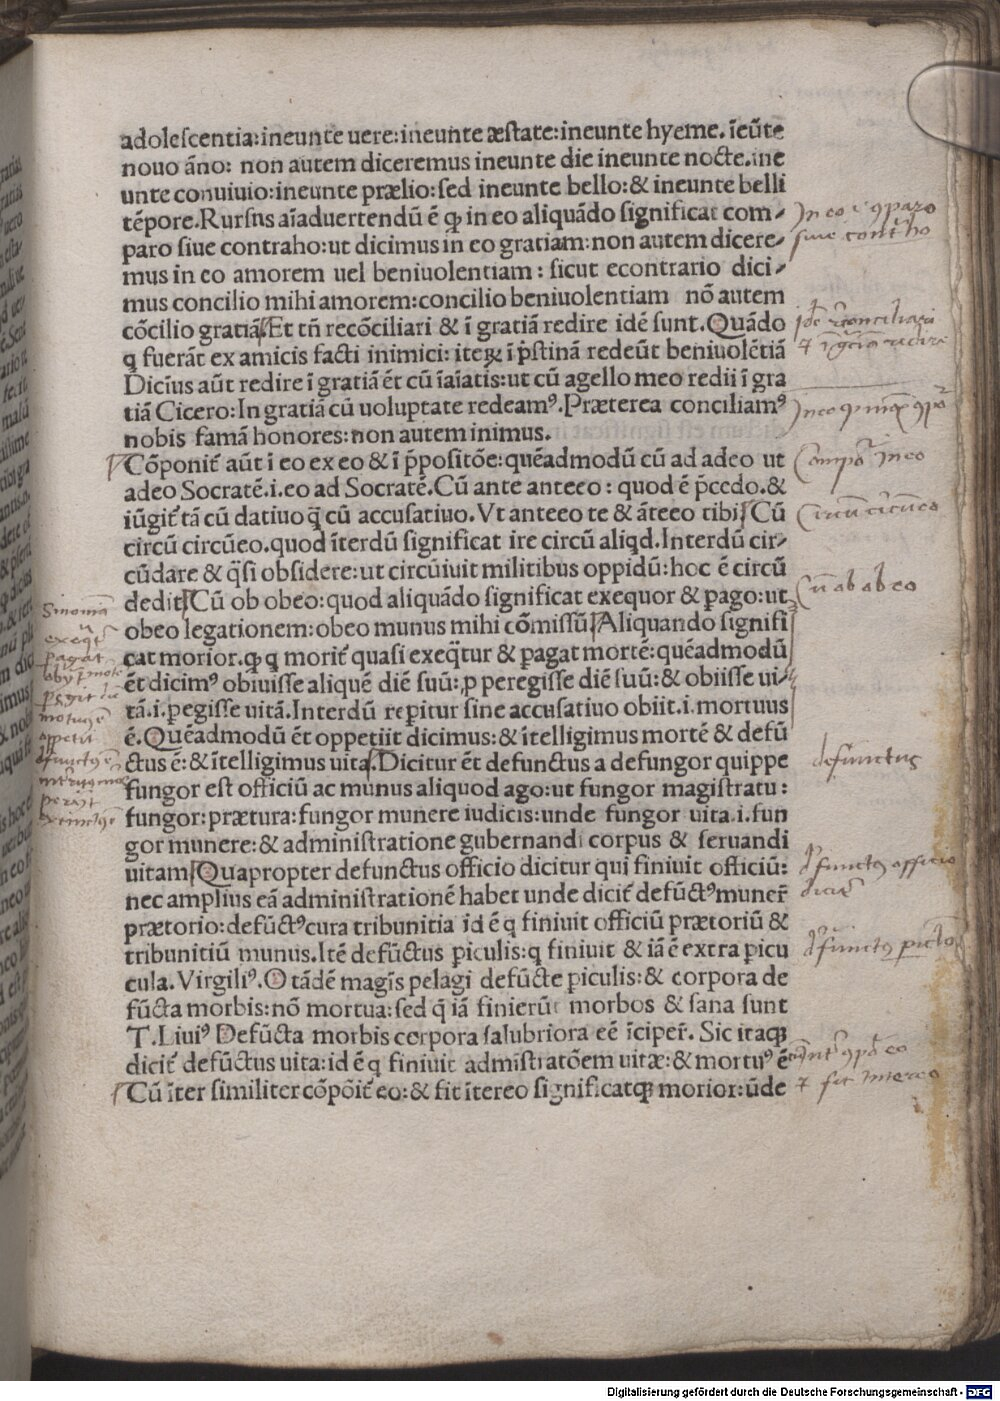 adolescentia:ineunte uere:ineunte æstate:ineunte hyeme. īeūte
nouo āno: non autem diceremus ineunte die ineunte nocte.ine
unte conuiuio:ineunte prælio:sed ineunte bello:& ineunte belli
tēpore.Rursus aīaduertendū ē ꝙ in eo aliquādo significat com-
paro siue contraho:ut dicimus in eo gratiam:non autem dicere-
mus in eo amorem uel beniuolentiam: sicut econtrario dici-
mus concilio mihi amorem:concilio beniuolentiam nō autem
cōcilio gratiā.Et tñ recōciliari & ī gratiā redire idē sunt.Quādo
q fuerāt ex amicis facti inimici: iteꝝ ī p̄stinā redeūt beniuolētiā
Dicīus aūt redire ī gratiā ēt cū īaīatis:ut cū agello meo redii ī gra
tiā Cicero:In gratiā cū uoluptate redeamꝰ.Præterea conciliamꝰ
nobis famā honores:non autem inimus.
Cōponit̄ aūt ī eo ex eo & ī p̄positōe:quēadmodū cū ad adeo ut
adeo Socratē.i.eo ad Socratē.Cū ante anteeo: quod ē p̄cedo.&
iūgit̄ tā cū datiuo q̄ cū accusatiuo.Vt anteeo te & āteeo tibi Cū
circū circūeo.quod īterdū significat ire circū aliqd.Interdū cir-
cūdare & q̄si obsidere:ut circūiuit militibus oppidū:hoc ē circū
dedit Cū ob obeo:quod aliquādo significat exequor & ꝑago:ut
obeo legationem:obeo munus mihi cōmissū Aliquando signifi
cat morior.ꝙ q morit̄ quasi exeq̄tur & ꝑagat mortē:quēadmodū
ēt dicimꝰ obiuisse aliquē diē suū:ꝓ peregisse diē suū:& obiisse ui-
tā.i.ꝑegisse uitā.Interdū reꝑitur sine accusatiuo obiit.i.mortuus
ē.Quēadmodū ēt oppetiit dicimus:& ītelligimus mortē & defū
ctus ē:& ītelligimus uita.Dicitur ēt defunctus a defungor quippe
fungor est officiū ac munus aliquod ago:ut fungor magistratu:
fungor:prætura:fungor munere iudicis:unde fungor uita.i.fun
gor munere:& administratione gubernandi corpus & seruandi
uitam Quapropter defunctus officio dicitur qui finiuit officiū:
nec amplius eā administrationē habet unde dicit̄ defūctꝰ muner̄
prætorio:defūctꝰ cura tribunitia id ē q finiuit officiū prætoriū &
tribunitiū munus.Itē defūctus ꝑiculis:q finiuit & iā ē extra ꝑicu
cula. Virgiliꝰ.O tādē magis pelagi defūcte ꝑiculis:& corpora de
fūcta morbis:nō mortua:sed q̄ iā finierūt morbos & sana sunt
T.Liuiꝰ Defūcta morbis corpora salubriora eē īciper̄. Sic itaqꝫ
dicit̄ defūctus uita:id ē q finiuit admistratōem uitæ:& mortuꝰ ē
Cū īter similiter cōpōit̄ eo:& fit ītereo significatqꝫ morior:ūde
defunctus
Digitalisierung gefördert durch die Deutsche Forschungsgemeinschaft - DFG